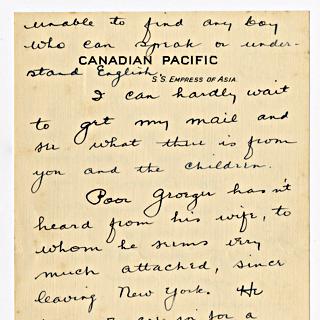 unable to find any boy
who can speak or under-
CANADIAN PACIFIC
stand English.
S.S. EMPRESS OF ASIA
I can hardly wait
to get my mail and
see what there is from
you and the children.
Poor George hasn't
heard from his wife, to
whom he seems very
much attached, since
leaving New York. He
for a